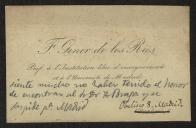 F. Giner de los Ríos
Prof. à l'Institution libre d'enseignement
et à l'Université de Madrid
siente mucho no haber tenido el honor
de encontrar al Sr. Dr. T. Braga y se
despide pª Madrid
Obelisco 8, Madrid